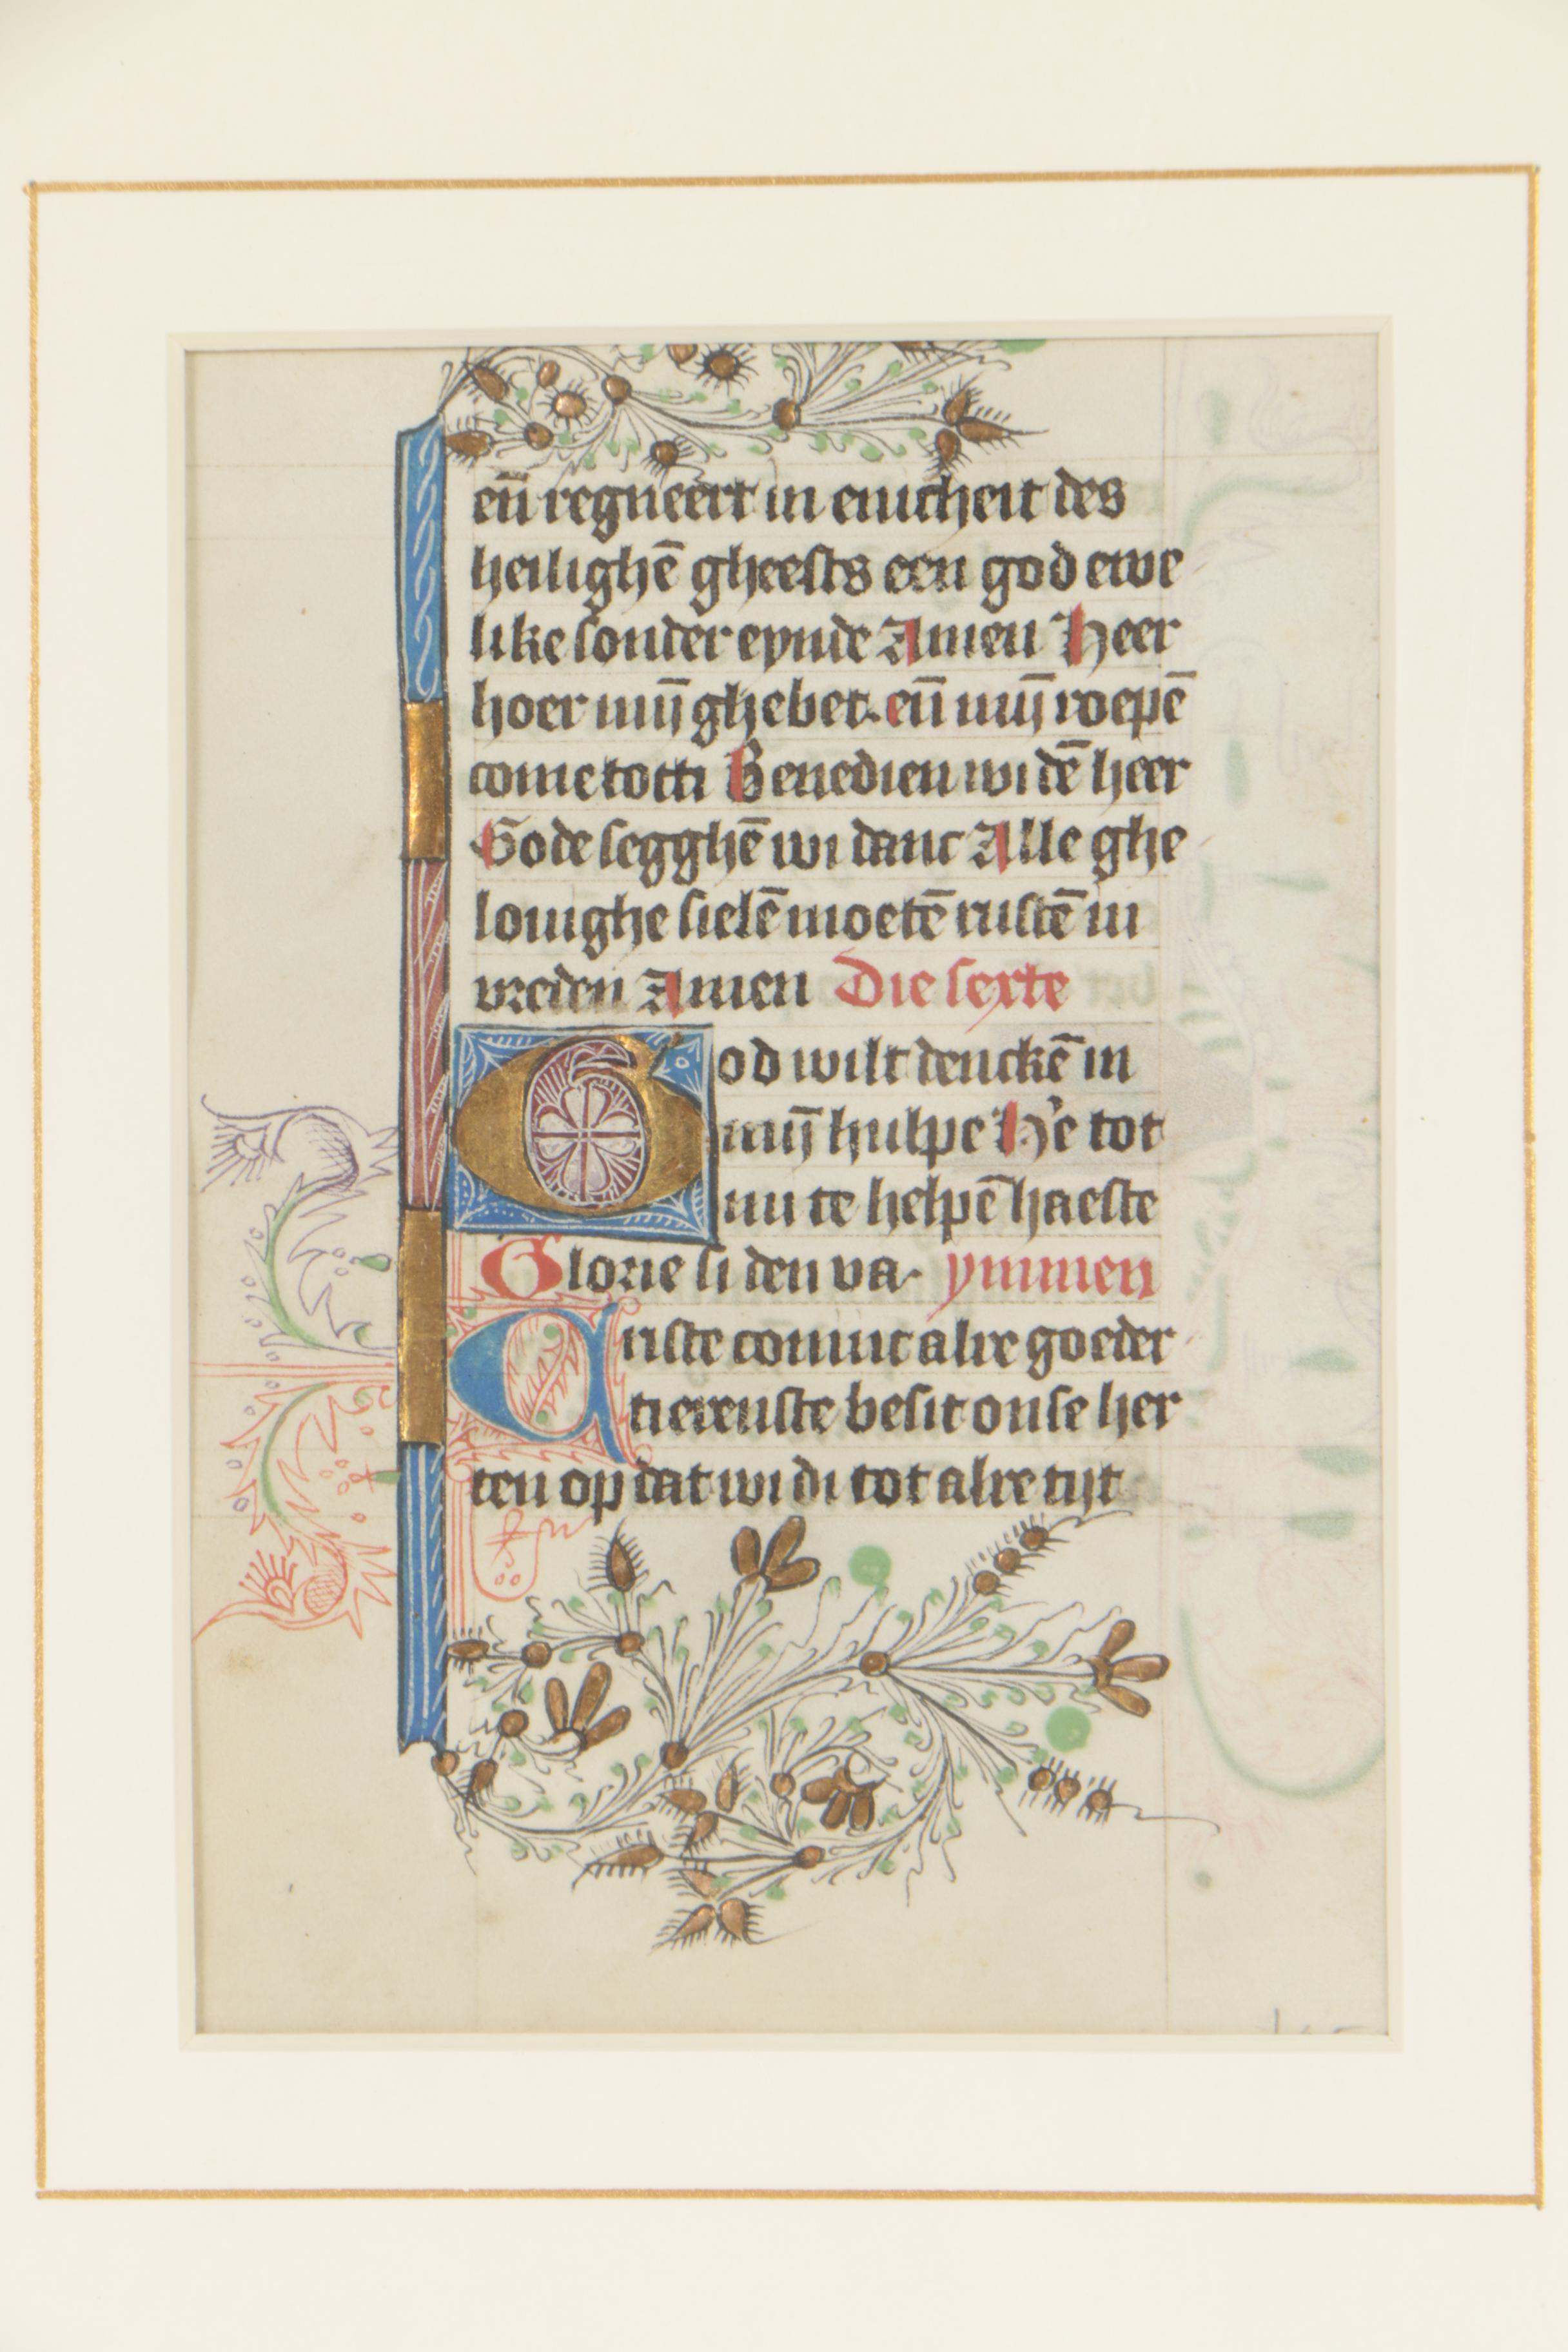 en̄ regneert in enicheit des
heilighē gheests een god ewe
like sonder eynde Amen Heer
hoer mijn̄ ghebet. en̄ mijn̄ roepē
come totti Benedien wi dē heer
Gode segghē wi danc Alle ghe
lovighe sielē moetē rustē in
vreden Amen Die sexte
God wilt denckē in
mijn̄ hulpe H'e tot
mi te helpē haeste
Glorie si den va. ymmen
Criste comt alre goeder
tierenste besit onse her
ten op dat wi di tot alre tijt